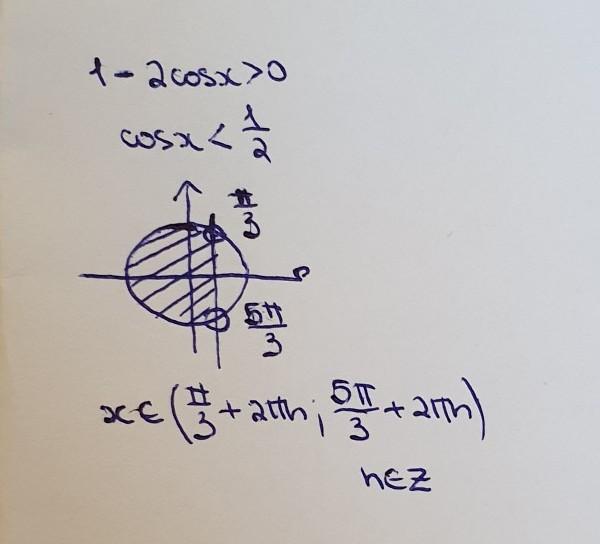 1 - 2cosx > 0
cosx < 1/2
π/3
5π/3
x ∈ (π/3 + 2πn; 5π/3 + 2πn)
n ∈ Z